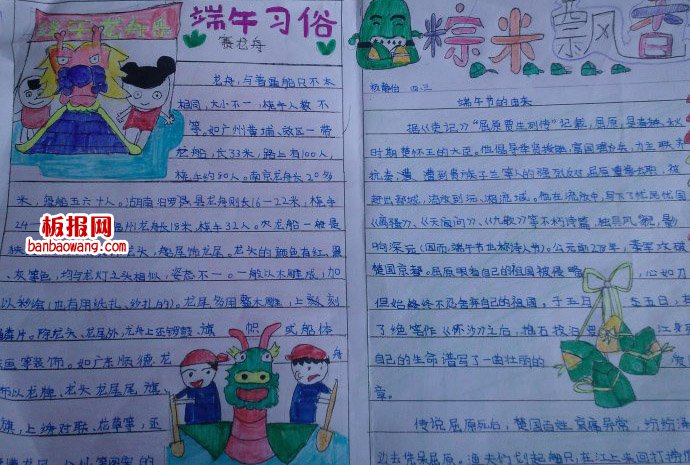 端午习俗
赛龙舟
龙舟,与普通船只不太
相同,大小不一,桡手人数不
等。如广州黄埔、效区一带
龙船,长33米,路上有100人,
桡手约80人。南京龙舟长20多
米,载船五六十人。湖南汨罗县龙舟则长16—22米,桡手
24
州龙舟长18米,桡手32人。次龙船一般是
头,船尾饰龙尾。龙头的颜色有红、黑
、灰等色,均与龙灯之头相似,姿态不一。一般以木雕成,加
以彩绘(也有用纸扎、纱扎的)。龙尾多用整木雕,上刻
鳞片。除龙头、龙尾外,龙舟上还有锣鼓、旗帜或船体
画等装饰。如广东顺德龙舟
饰以龙牌,龙头龙尾旗
旗,上绣对联、花草等,还
板报网
banbaowang.com
粽米飘香
四.三
端午节的由来
据《史记》"屈原贾生列传"记载,屈原,是春秋
时期楚怀王的大臣。他倡导举贤授能,富国强兵,力主联
抗秦,遭到贵族子兰等人的强烈反对,屈原遭馋去职,被
赶出都城,流放到沅、湘流域。他在流放中,写下了忧国忧民
《离骚》、《天问》、《九歌》等不朽诗篇,独具风貌,影
响深远(因而,端午节也称诗人节)。公元前278年,秦军攻破
楚国京都。屈原眼看自己的祖国被侵略,心如刀
但始终不忍舍弃自己的祖国,于五月五日,在
了绝笔作《怀沙》之后,抱石投汨
江身死
自己的生命谱写了一曲壮丽的
章。
传说屈原死后,楚国百姓哀痛异常,纷纷涌
边去凭吊屈原。渔夫们划起船只,在江上来回打捞他